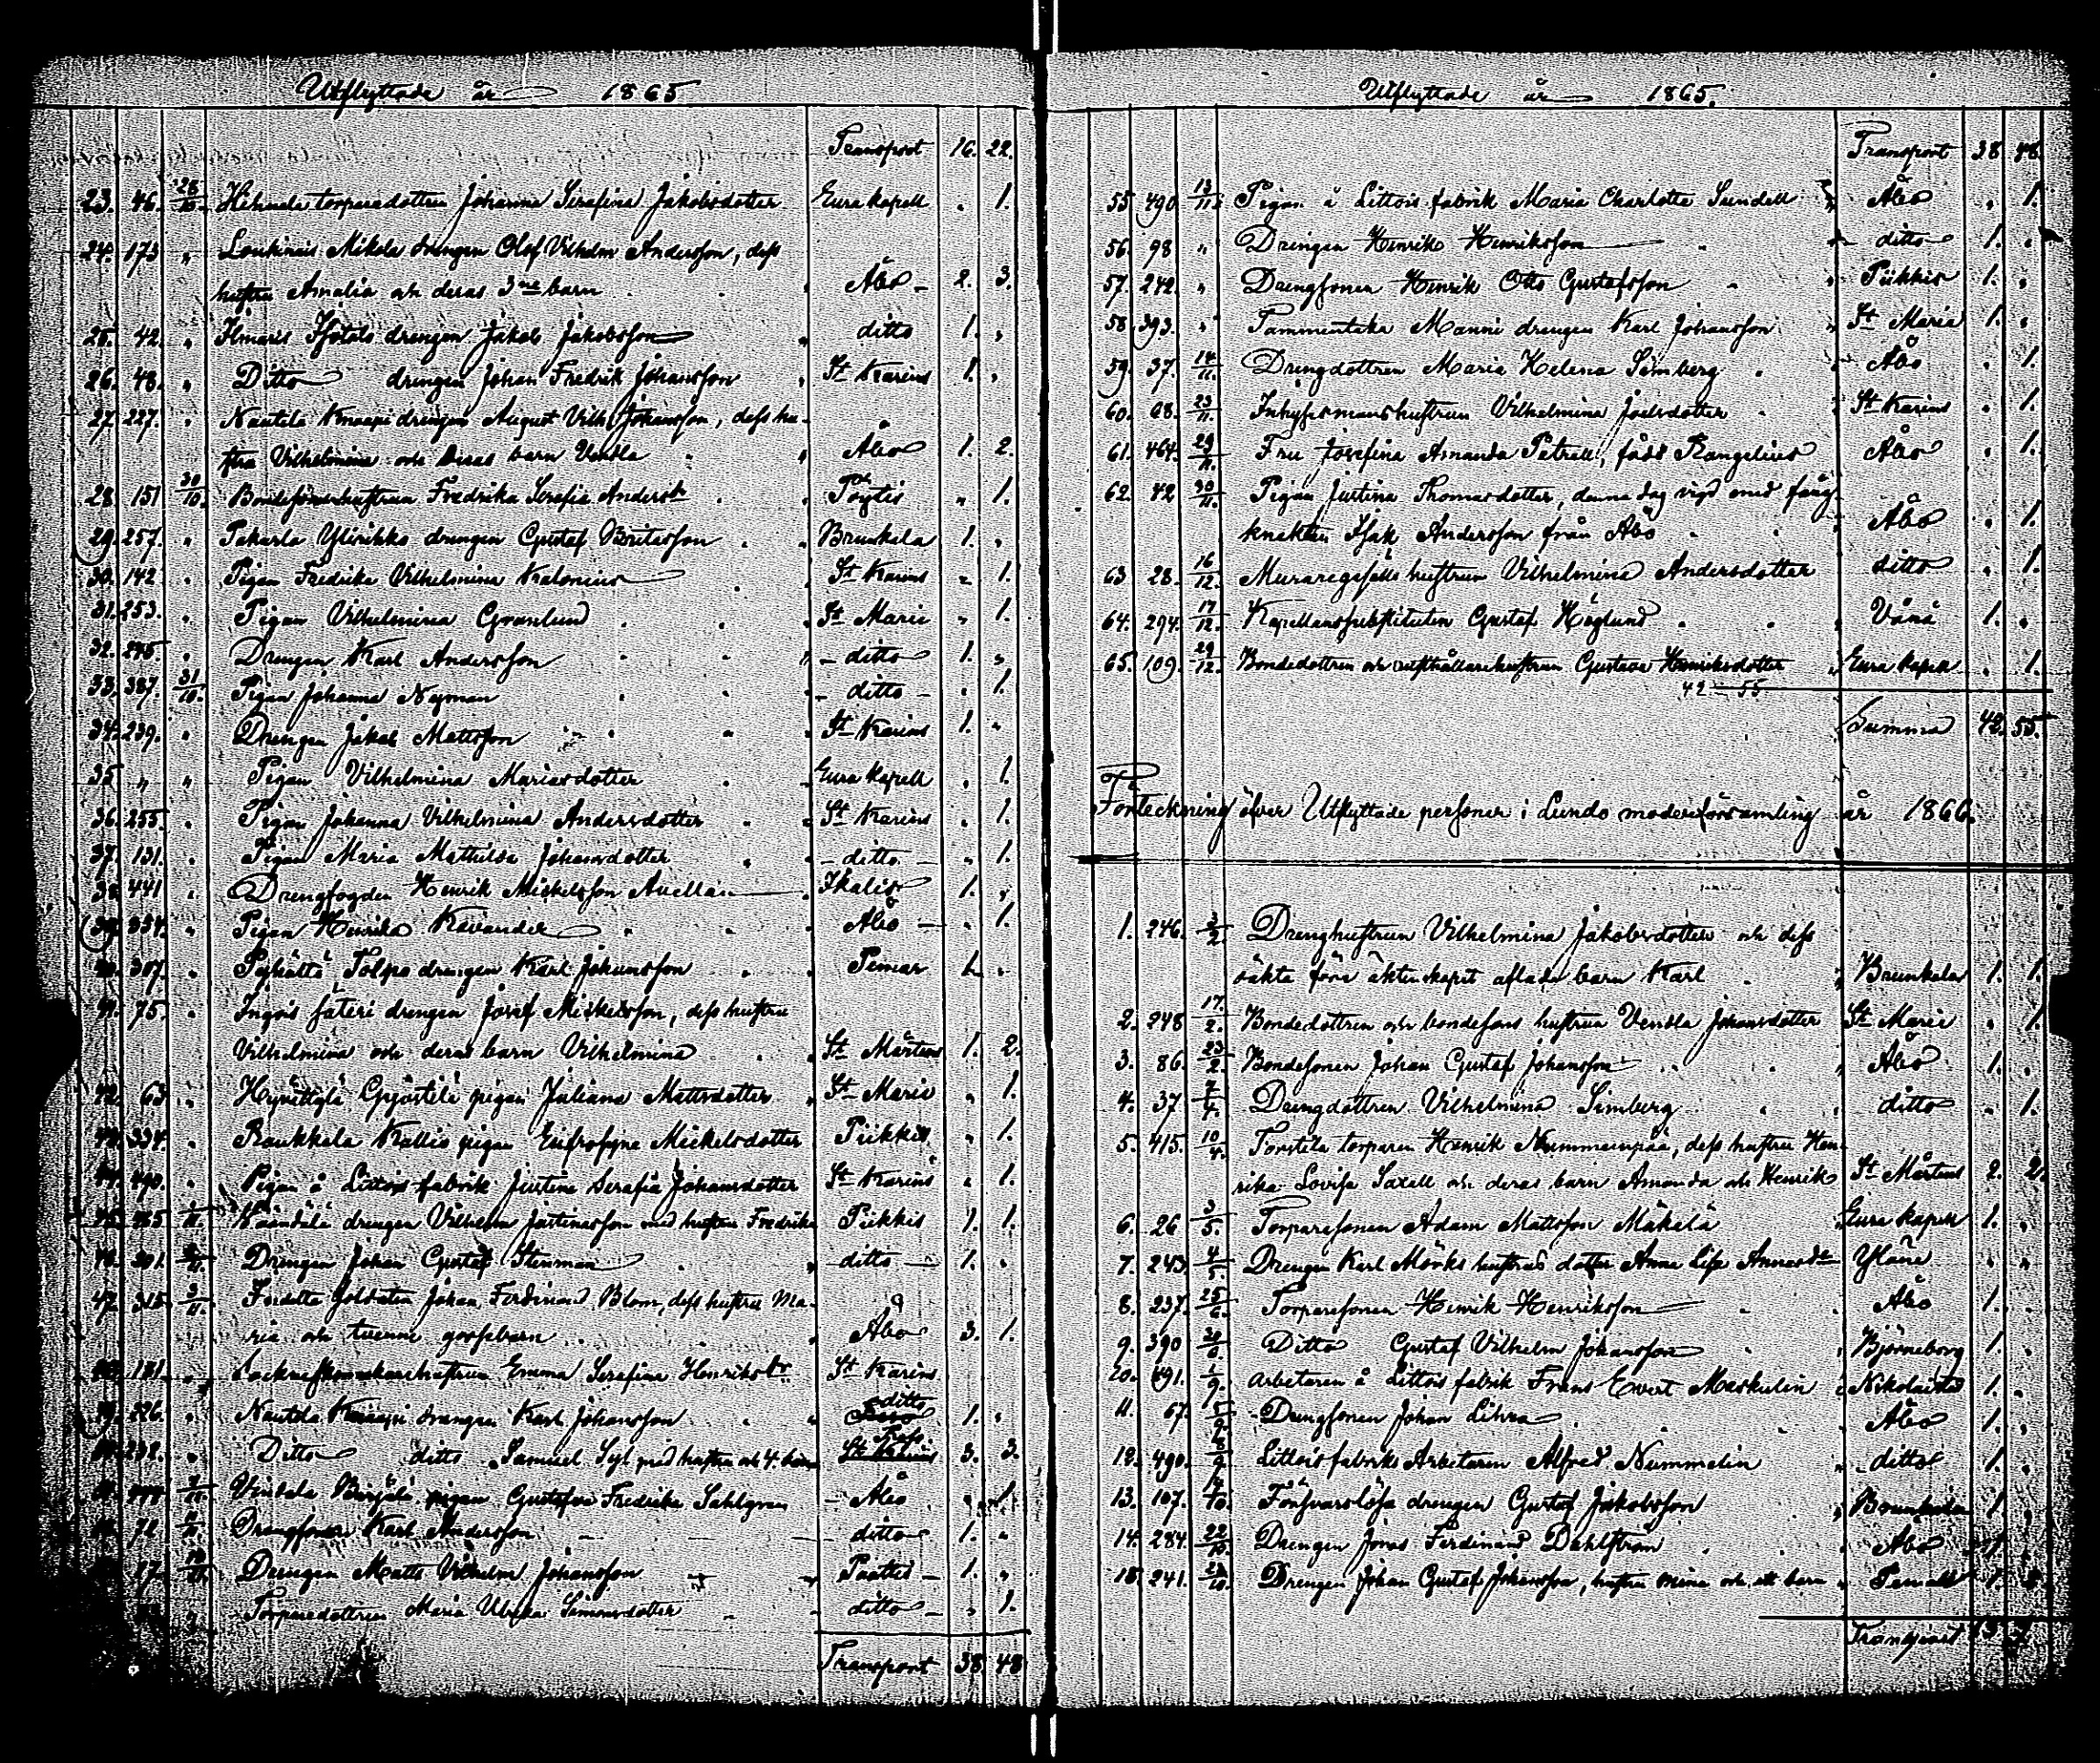 Utflyttade år 1865
Transport 16. 22.
23. 46. 28/10. torparedottren Johanna Serafina Jakobsdotter Eura Kapell „ 1.
24. 173 „ Mikola drengen Olof Vilhelm Andersson, dess
hustru Amalia och deras 3ne barn Åbo 2. 3.
25. 42. „ Ilmaris Isotalo drengen Jakob Jakobsson ditto 1. „
26. 48. „ Ditto drengen Johan Fredrik Johansson St Karins 1. „
27. 227. „ Nautela Knaapi drengen August Vilh. Johansson, dess hu-
stru Vilhelmina och deras barn Vendla Åbo 1. 2.
28. 151 30/10. Fredrika Serafia Andersdr Pöytis „ 1.
29. 257. „ drengen Gustaf Britasson Brunkala 1. „
30. 142 „ Pigan Fredrika Vilhelmina Kalonius St Karins „ 1.
31. 253. „ Pigan Vilhelmina Granlund St Marie „ 1.
32. 275. „ Drengen Karl Andersson ditto 1. „
33. 387. 31/10. Pigan Johanna Nyman ditto „ 1.
34. 239. „ Drengen Jakob Mattsson St Karins 1. „
35 „ „ Pigan Vilhelmina Mariasdotter Eura Kapell „ 1.
36. 255. „ Pigan Johanna Vilhelmina Andersdotter St Karins „ 1.
37. 131. „ Pigan Maria Mathilda Johansdotter ditto „ 1.
38. 441 „ Drengfogden Henrik Mickelsson Avellan Ikalis 1. „
„ Pigan Henrika Kavander Åbo „ 1.
307. „ Tolpo drengen Karl Johansson Pemar 1. „
41. 75. „ säteri drengen Josef Mickelsson, dess hustru
Vilhelmina och deras barn Vilhelmina St Mårtens 1. 2.
42. 63 „ pigan Juliana Mattsdotter St Marie „ 1.
334. „ Raukkala Kallio pigan Eufrosyne Mickelsdotter Piikkis „ 1.
490. „ Pigan å Littois fabrik Justina Serafia Johansdotter St Karins „ 1.
drengen Vilhelm Justinasson med hustru Fredrika Piikkis 1. 1.
Drengen Johan Gustaf Stenman ditto 1. „
47. 315. 3/11. soldaten Johan Ferdinand Blom, dess hustru Ma-
ria och tvenne gossebarn Åbo 3. 1.
131. „ Emma Serafina Henriksdr St Karins
226. „ Nautela Knaapi drengen Karl Johansson ditto 1. „
232. „ Ditto ditto Samuel med hustru och 4 barn 3. 3.
pigan Gustafva Fredrika Sahlgren Åbo „ 1.
72 Drengsonen Karl Andersson ditto 1. „
Drengen Matts Vilhelm Johansson Paattis 1. „
„ Torparedottren Maria Ulrika Simonsdotter ditto „ 1.
Transport 38. 48
Utflyttade år 1865.
Transport 38 48.
55 490. 13/11. Pigan å Littois fabrik Maria Charlotta Sundell Åbo „ 1.
56. 98 „ Drengen Henrik Henriksson ditto 1. „
57. 242. „ Drengsonen Henrik Otto Gustafsson Piikkis 1. „
58 393. „ Tammentaka Manni drengen Karl Johansson St Maria 1. „
59. 37. 14/11. Drengdottren Maria Helena Simberg Åbo „ 1.
60. 68. 23/11. Inhysesmanshustrun Vilhelmina Joelsdotter St Karins „ 1.
61. 464. 29/11. Fru Josefina Amanda Petrell, född Rangelius Åbo „ 1.
62. 42 30/11. Pigan Justina Thomasdotter, denna dag vigd med fång-
knekten Isak Andersson från Åbo Åbo „ 1.
63 28. 16/12. Muraregesälls hustrun Vilhelmina Andersdotter ditto „ 1.
64. 294. 17/12. Kapellanssubstituten Gustaf Höglund Vånå 1. „
65. 109. 29/12. Bondedottren och rusthållarehustrun Gustava Henriksdotter Eura Kapell „ 1.
42 - 55
Summa 42. 55.
Förteckning öfver Utflyttade personer i Lundo moderförsamling år 1866.
1. 246. 3/2. Drenghustrun Vilhelmina Jakobsdotter och dess
oäkta före äktenskapet aflade barn Karl Brunkala 1. 1.
2. 248 17/2. Bondedottren och bondesons hustrun Vendla Johansdotter St Marie „ 1.
3. 86. 23/2. Bondesonen Johan Gustaf Johansson Åbo 1. „
4. 37 7/4. Drengdottren Vilhelmina Simberg ditto „ 1.
5. 415. 10/4. torparen Henrik Nummenpää, dess hustru Hen-
rika Lovisa Saxell och deras barn Amanda och Henrik St Mårtens 2. 2.
6. 26 3/5. Torparesonen Adam Mattsson Mäkelä Eura Kapell 1. „
7. 243. 4/5. Drengen Karl Mörks hustrus dotter Anna Lisa Annasdr Yläne „ „
8. 237. 25/6. Torparesonen Henrik Henriksson Åbo 1. „
9. 390 Ditto Gustaf Vilhelm Johansson Björneborg 1. „
10. 491. 1/9. Arbetaren å Littois fabrik Frans Evert Maskulin Nikolaistad 1. „
11. 67. Drengsonen Johan Lihra Åbo 1. „
12. 490. Littois fabriks Arbetaren Alfred Nummelin ditto 1. „
13. 107. Försvarslösa drengen Gustaf Jakobsson Brunkala 1. „
14. 284. 22/10. Drengen Jonas Ferdinand Dahlström Åbo 1. „
15. 241. Drengen Johan Gustaf Johansson, hustru Mina och ett barn
Transport 13.